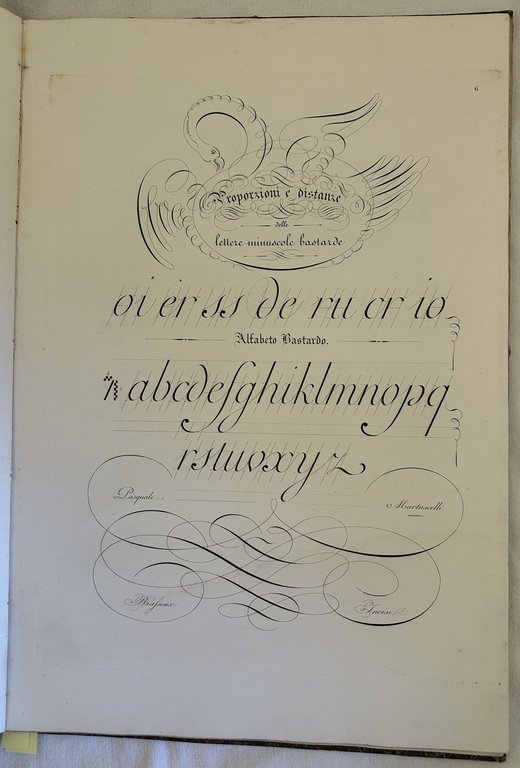 6
Proporzioni e distanze
delle
lettere minuscole bastarde
oi er ss de ru cr io
Alfabeto Bastardo.
abcdefghiklmnopq
rstuvxyz
Pasquale Martuscelli
Incise